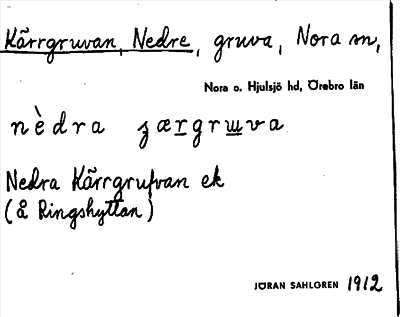 Kärrgruvan, Nedre, gruva, Nora sn,
Nora o. Hjulsjö hd, Örebro län
nèdra ʒærgrɯva
Nedra Kärrgrufvan ek
(å Ringshyttan)
JÖRAN SAHLGREN 1912